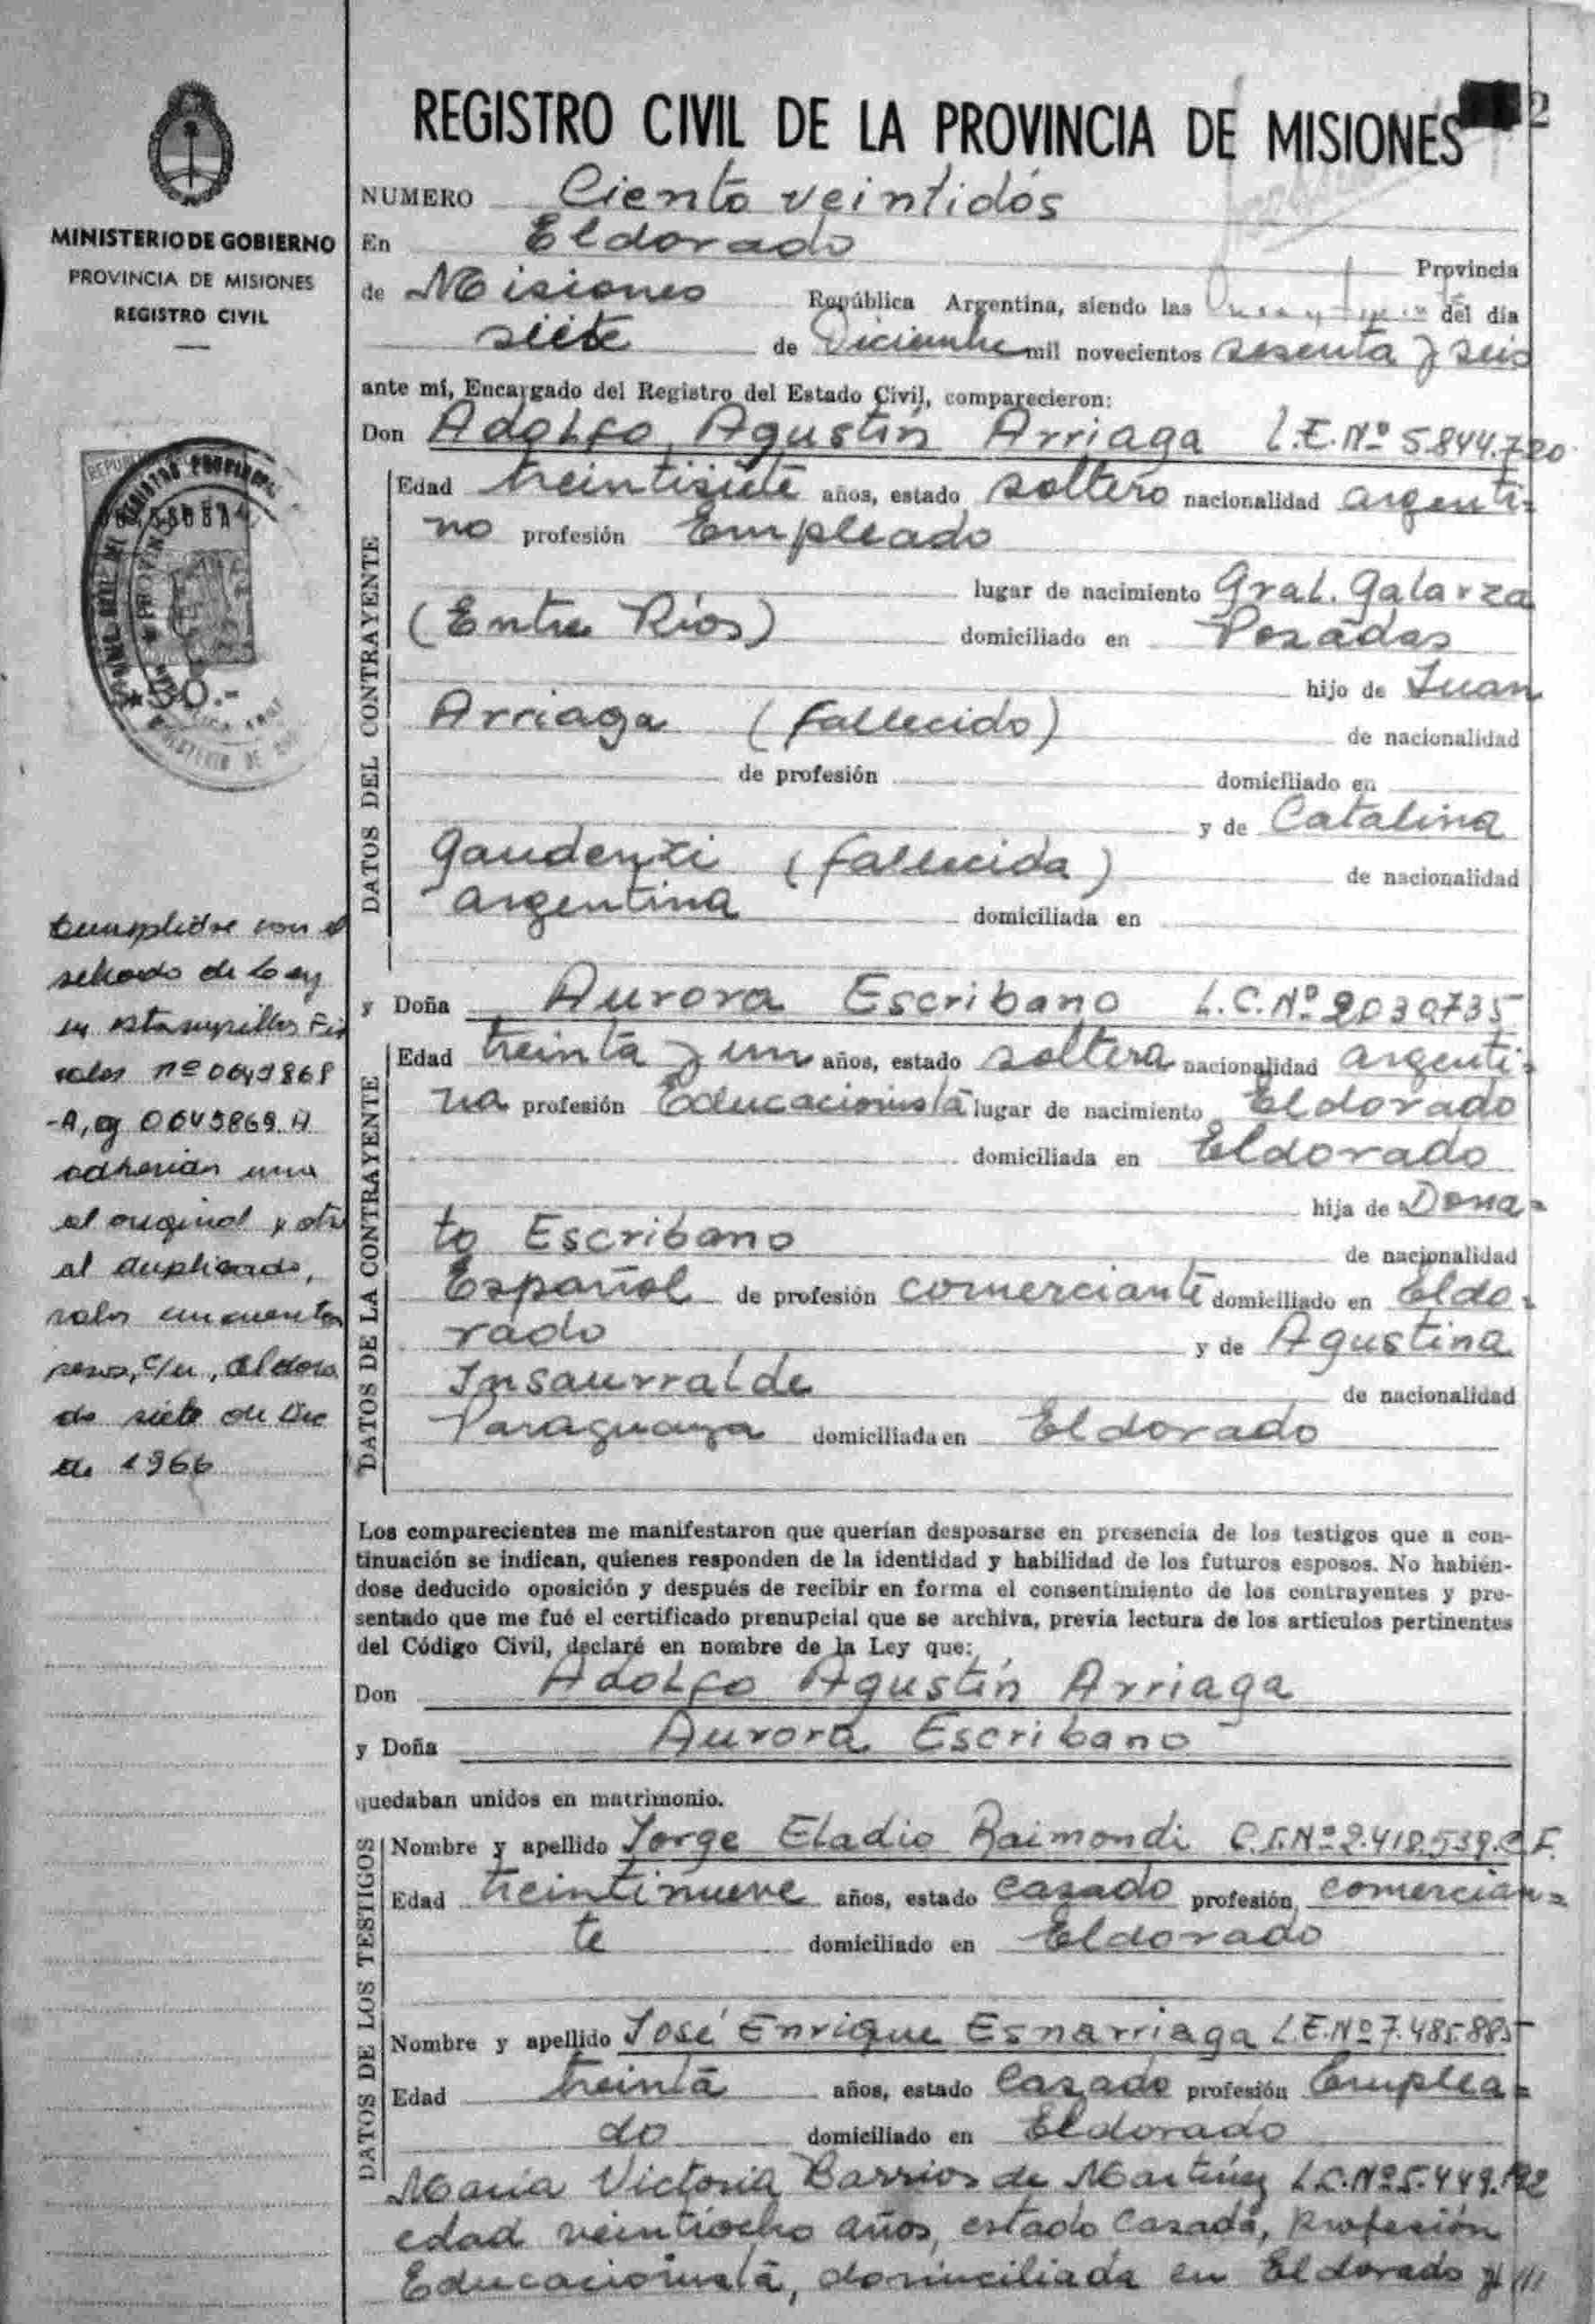 REGISTRO CIVIL DE LA PROVINCIA DE MISIONES
2
MINISTERIO DE GOBIERNO
PROVINCIA DE MISIONES
REGISTRO CIVIL
NUMERO Ciento veintidós
En Eldorado
Provincia
de Misiones República Argentina, siendo las del día
siete de Diciembre mil novecientos sesenta y seis
ante mí, Encargado del Registro del Estado Civil, comparecieron:
Don Adolfo Agustín Arriaga L.E.Nº 5.844.720
DATOS DEL CONTRAYENTE
Edad treintisiete años, estado soltero nacionalidad argenti=
no profesión Empleado
lugar de nacimiento Gral. Galarza
(Entre Ríos) domiciliado en Posadas
hijo de Juan
Arriaga (fallecido) de nacionalidad
de profesión domiciliado en
y de Catalina
Gaudenzi (fallecida) de nacionalidad
argentina domiciliada en
y Doña Aurora Escribano L.C.Nº 2030735
DATOS DE LA CONTRAYENTE
Edad treinta y un años, estado soltera nacionalidad argenti=
na profesión Educacionista lugar de nacimiento Eldorado
domiciliada en Eldorado
hija de Dona=
to Escribano de nacionalidad
Español de profesión comerciante domiciliado en Eldo=
rado y de Agustina
Insaurralde de nacionalidad
Paraguaya domiciliada en Eldorado
Los comparecientes me manifestaron que querían desposarse en presencia de los testigos que a con-
tinuación se indican, quienes responden de la identidad y habilidad de los futuros esposos. No habién-
dose deducido oposición y después de recibir en forma el consentimiento de los contrayentes y pre-
sentado que me fué el certificado prenupcial que se archiva, previa lectura de los artículos pertinentes
del Código Civil, declaré en nombre de la Ley que:
Don Adolfo Agustín Arriaga
y Doña Aurora Escribano
quedaban unidos en matrimonio.
DATOS DE LOS TESTIGOS
Nombre y apellido Jorge Eladio Raimondi C.I.Nº 2.418.539.C.F.
Edad treintinueve años, estado casado profesión comercian=
te domiciliado en Eldorado
Nombre y apellido José Enrique Esnarriaga L.E.Nº 7.485.885
Edad treinta años, estado Casado profesión Emplea=
do domiciliado en Eldorado
María Victoria Barrios de Martínez L.C.Nº 5.449.
edad veintiocho años, estado Casada, Profesión
Educacionista, domiciliada en Eldorado
*50.-
sellado de Ley
en estampillas Fis
cales nº 0649868
-A, y 0649869 A
adherian una
al original y otra
al duplicado,
valor cincuenta
pesos, c/u, Eldora
do siete de Dic
de 1966